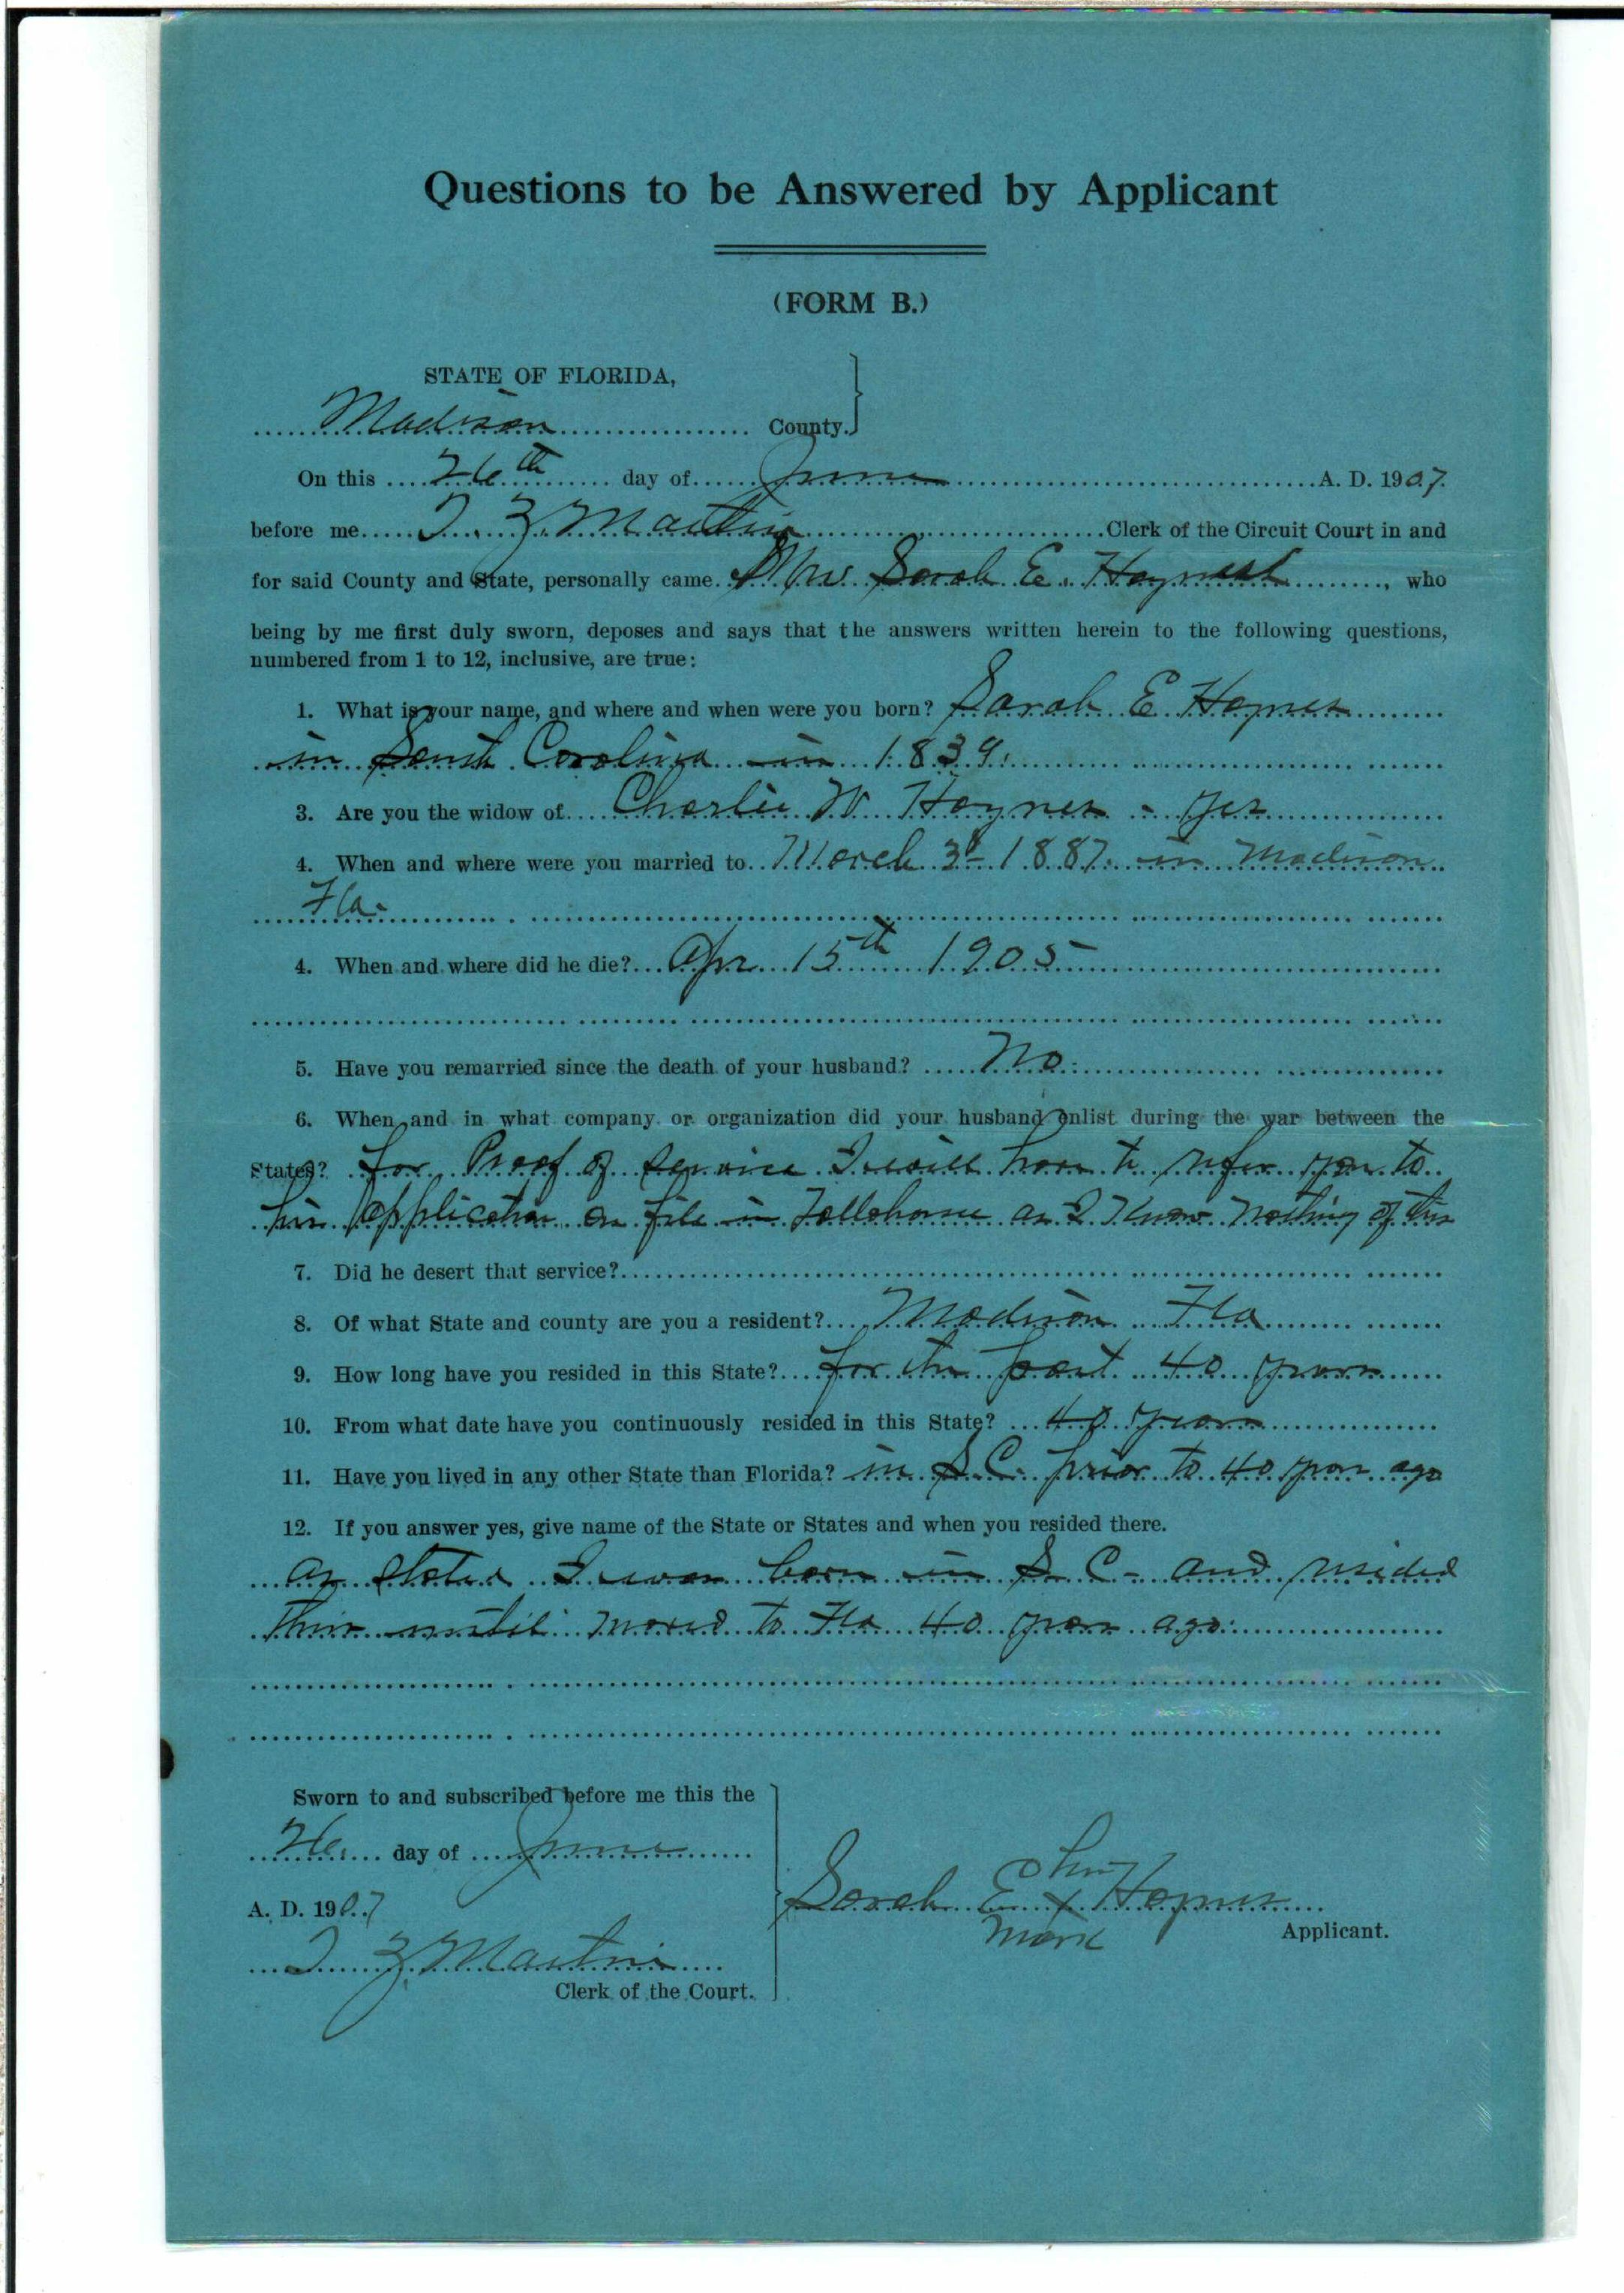 Questions to be Answered by Applicant
(FORM B.)
STATE OF FLORIDA,
Madison County.
On this 26th day of June A. D. 1907.
before me T. Z. Martin Clerk of the Circuit Court in and
for said County and State, personally came Mrs Sarah E. Haynes, who
being by me first duly sworn, deposes and says that the answers written herein to the following questions,
numbered from 1 to 12, inclusive, are true:
1. What is your name, and where and when were you born? Sarah E Haynes
in South Carolina in 1839.
3. Are you the widow of Charlie W Haynes - yes
4. When and where were you married to March 3d 1887 in Madison
Fla.
4. When and where did he die? Apr 15th 1905
5. Have you remarried since the death of your husband? No
6. When and in what company or organization did your husband enlist during the war between the
States? for Proof of service I will have to refer you to
his application on file in Tallahassee as I Know nothing of this
7. Did he desert that service?
8. Of what State and county are you a resident? Madison Fla
9. How long have you resided in this State? for the past 40 years
10. From what date have you continuously resided in this State? 40 years
11. Have you lived in any other State than Florida? in S.C. prior to 40 years ago
12. If you answer yes, give name of the State or States and when you resided there.
as stated I was born in S C - and resided
there until moved to Fla 40 years ago
Sworn to and subscribed before me this the
26 day of June
A. D. 1907
T Z Martin
Clerk of the Court.
her
Sarah E x Haynes
mark
Applicant.